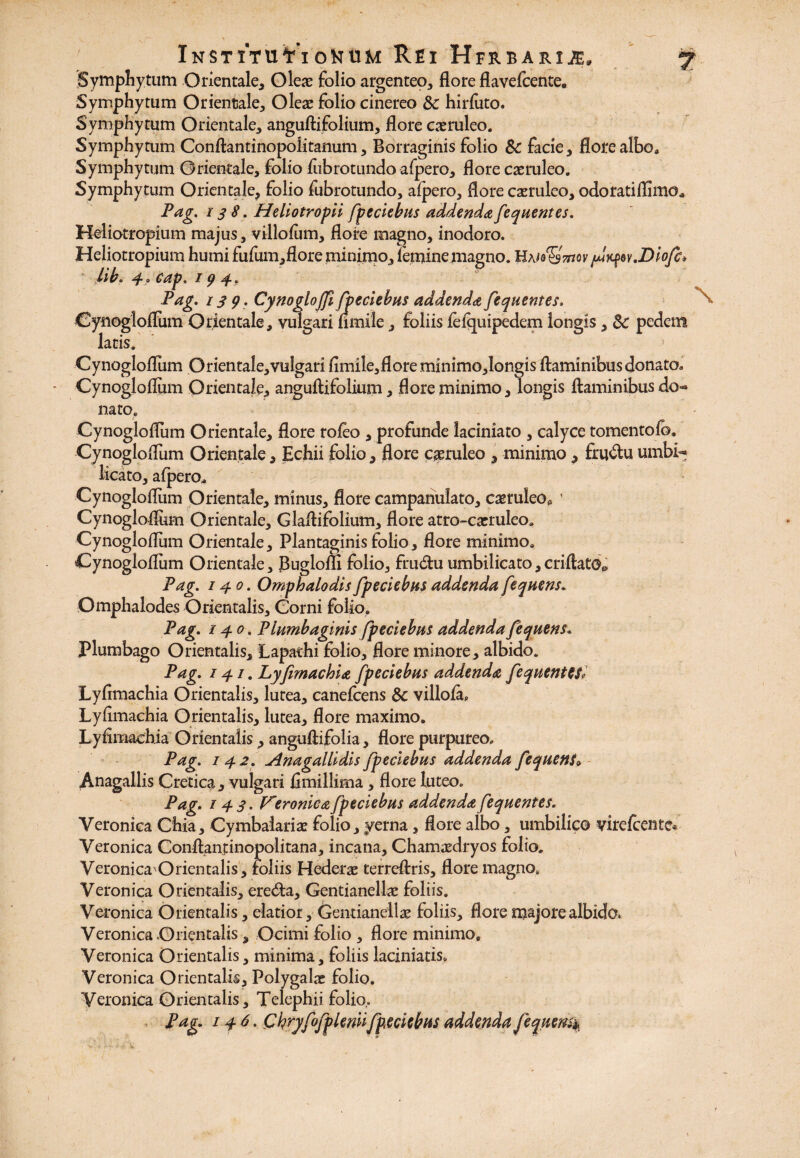 INSTITUTIONUM REI HERBARIÆ. 7
Symphytum Orientale, Oleæ folio argenteo, flore flavefcente.
Symphytum Orientale, Oleæ folio cinereo & hirfuto.
Symphytum Orientale, anguftifolium, flore cæruleo.
Symphytum Conftantinopolitanum, Borraginis folio & facie, flore albo.
Symphytum Orientale, folio fubrotundo afpero, flore cæruleo.
Symphytum Orientale, folio fubrotundo, afpero, flore cæruleo, odoratiffimo.
Pag. 138. Heliotropii fpeciebus addenda fequentes.
Heliotropium majus, villofum, flore magno, inodoro.
Heliotropium humi fufum, flore minimo, femine magno. Ηλιοτρόπιον μικρόν. Diofc.
lib. 4. cap. 194.
Pag. 139. Cynogloffi fpeciebus addendæ fequentes.
Cynogloffum Orientale, vulgari fimile, foliis fefquipedem longis, & pedem
latis.
Cynogloffum Orientale, vulgari fimile, flore minimo, longis ftaminibus donato.
Cynogloffum Orientale, anguftifolium, flore minimo, longis ftaminibus do-
nato.
Cynogloffum Orientale, flore rofeo, profunde laciniato, calyce tomentofo.
Cynogloffum Orientale, Echii folio, flore cæruleo, minimo, fructu umbi-
licato, afpero.
Cynogloffum Orientale, minus, flore campanulato, cæruleo.
Cynogloffum Orientale, Glaftifolium, flore atro-cæruleo.
Cynogloffum Orientale, Plantaginis folio, flore minimo.
Cynogloffum Orientale, Bugloffi folio, fructu umbilicato, criftato.
Pag. 140. Omphalodis fpeciebus addenda fequens.
Omphalodes Orientalis, Corni folio.
Pag. 140. Plumbaginis fpeciebus addenda fequens.
Plumbago Orientalis, Lapathi folio, flore minore, albido.
Pag. 141. Lyfimachiæ fpeciebus addendæ fequentes.
Lyfimachia Orientalis, lutea, canefcens & villofa.
Lyfimachia Orientalis, lutea, flore maximo.
Lyfimachia Orientalis, anguftifolia, flore purpureo.
Pag. 142. Anagallidis fpeciebus addenda fequens.
Anagallis Cretica, vulgari fimillima, flore luteo.
Pag. 143. Veronicæ fpeciebus addendæ fequentes.
Veronica Chia, Cymbalariæ folio, verna, flore albo, umbilico virefcente.
Veronica Conftantinopolitana, incana, Chamædryos folio.
Veronica Orientalis, foliis Hederæ terreftris, flore magno.
Veronica Orientalis, erecta, Gentianellæ foliis.
Veronica Orientalis, elatior, Gentianellæ foliis, flore majore albido.
Veronica Orientalis, Ocimi folio, flore minimo.
Veronica Orientalis, minima, foliis laciniatis.
Veronica Orientalis, Polygalæ folio.
Veronica Orientalis, Telephii folio.
Pag. 146. Chryfofplenii fpeciebus addenda fequens.